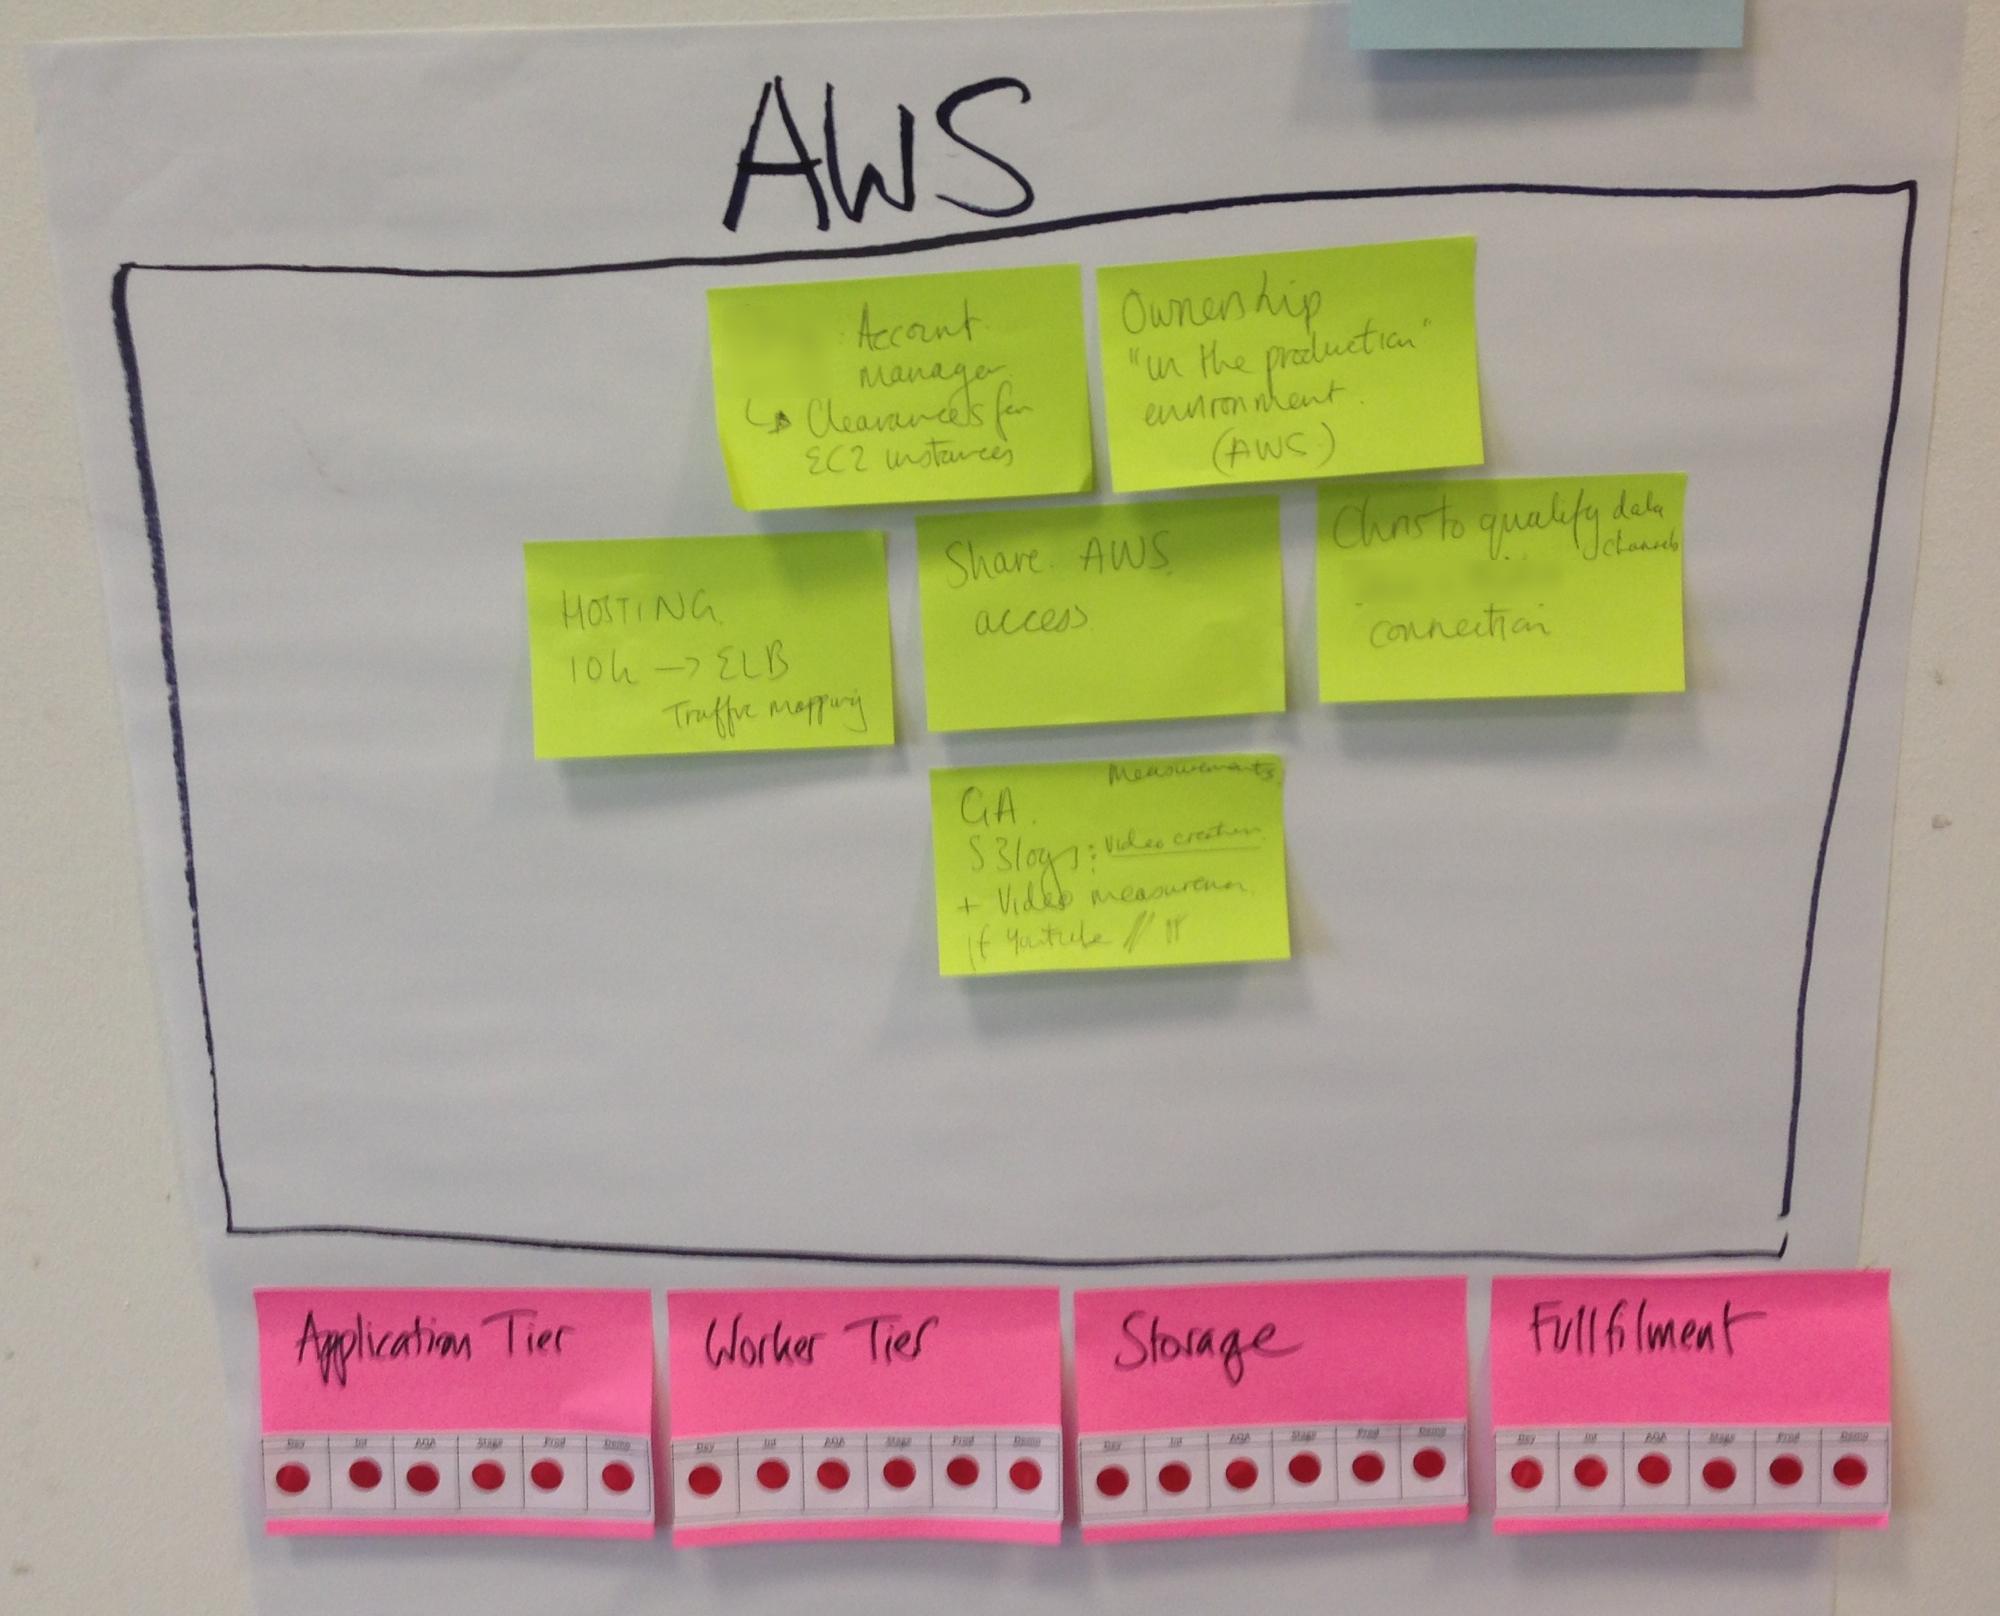 AWS
Account
manager
Clearances for
EC2 instances
Ownership
"in the production"
environment.
(AWS)
HOSTING
10h → ELB
Traffic mapping
Share AWS
access
Chris to qualify data
channels
connection
measurements
GA
S3 logs: video creation
+ Video
if Youtube //
Application Tier
Dev Int AQA Stage Prod Demo
Worker Tier
Dev Int AQA Stage Prod Demo
Storage
Dev Int AQA Stage Prod Demo
Fullfilment
Dev Int AQA Stage Prod Demo